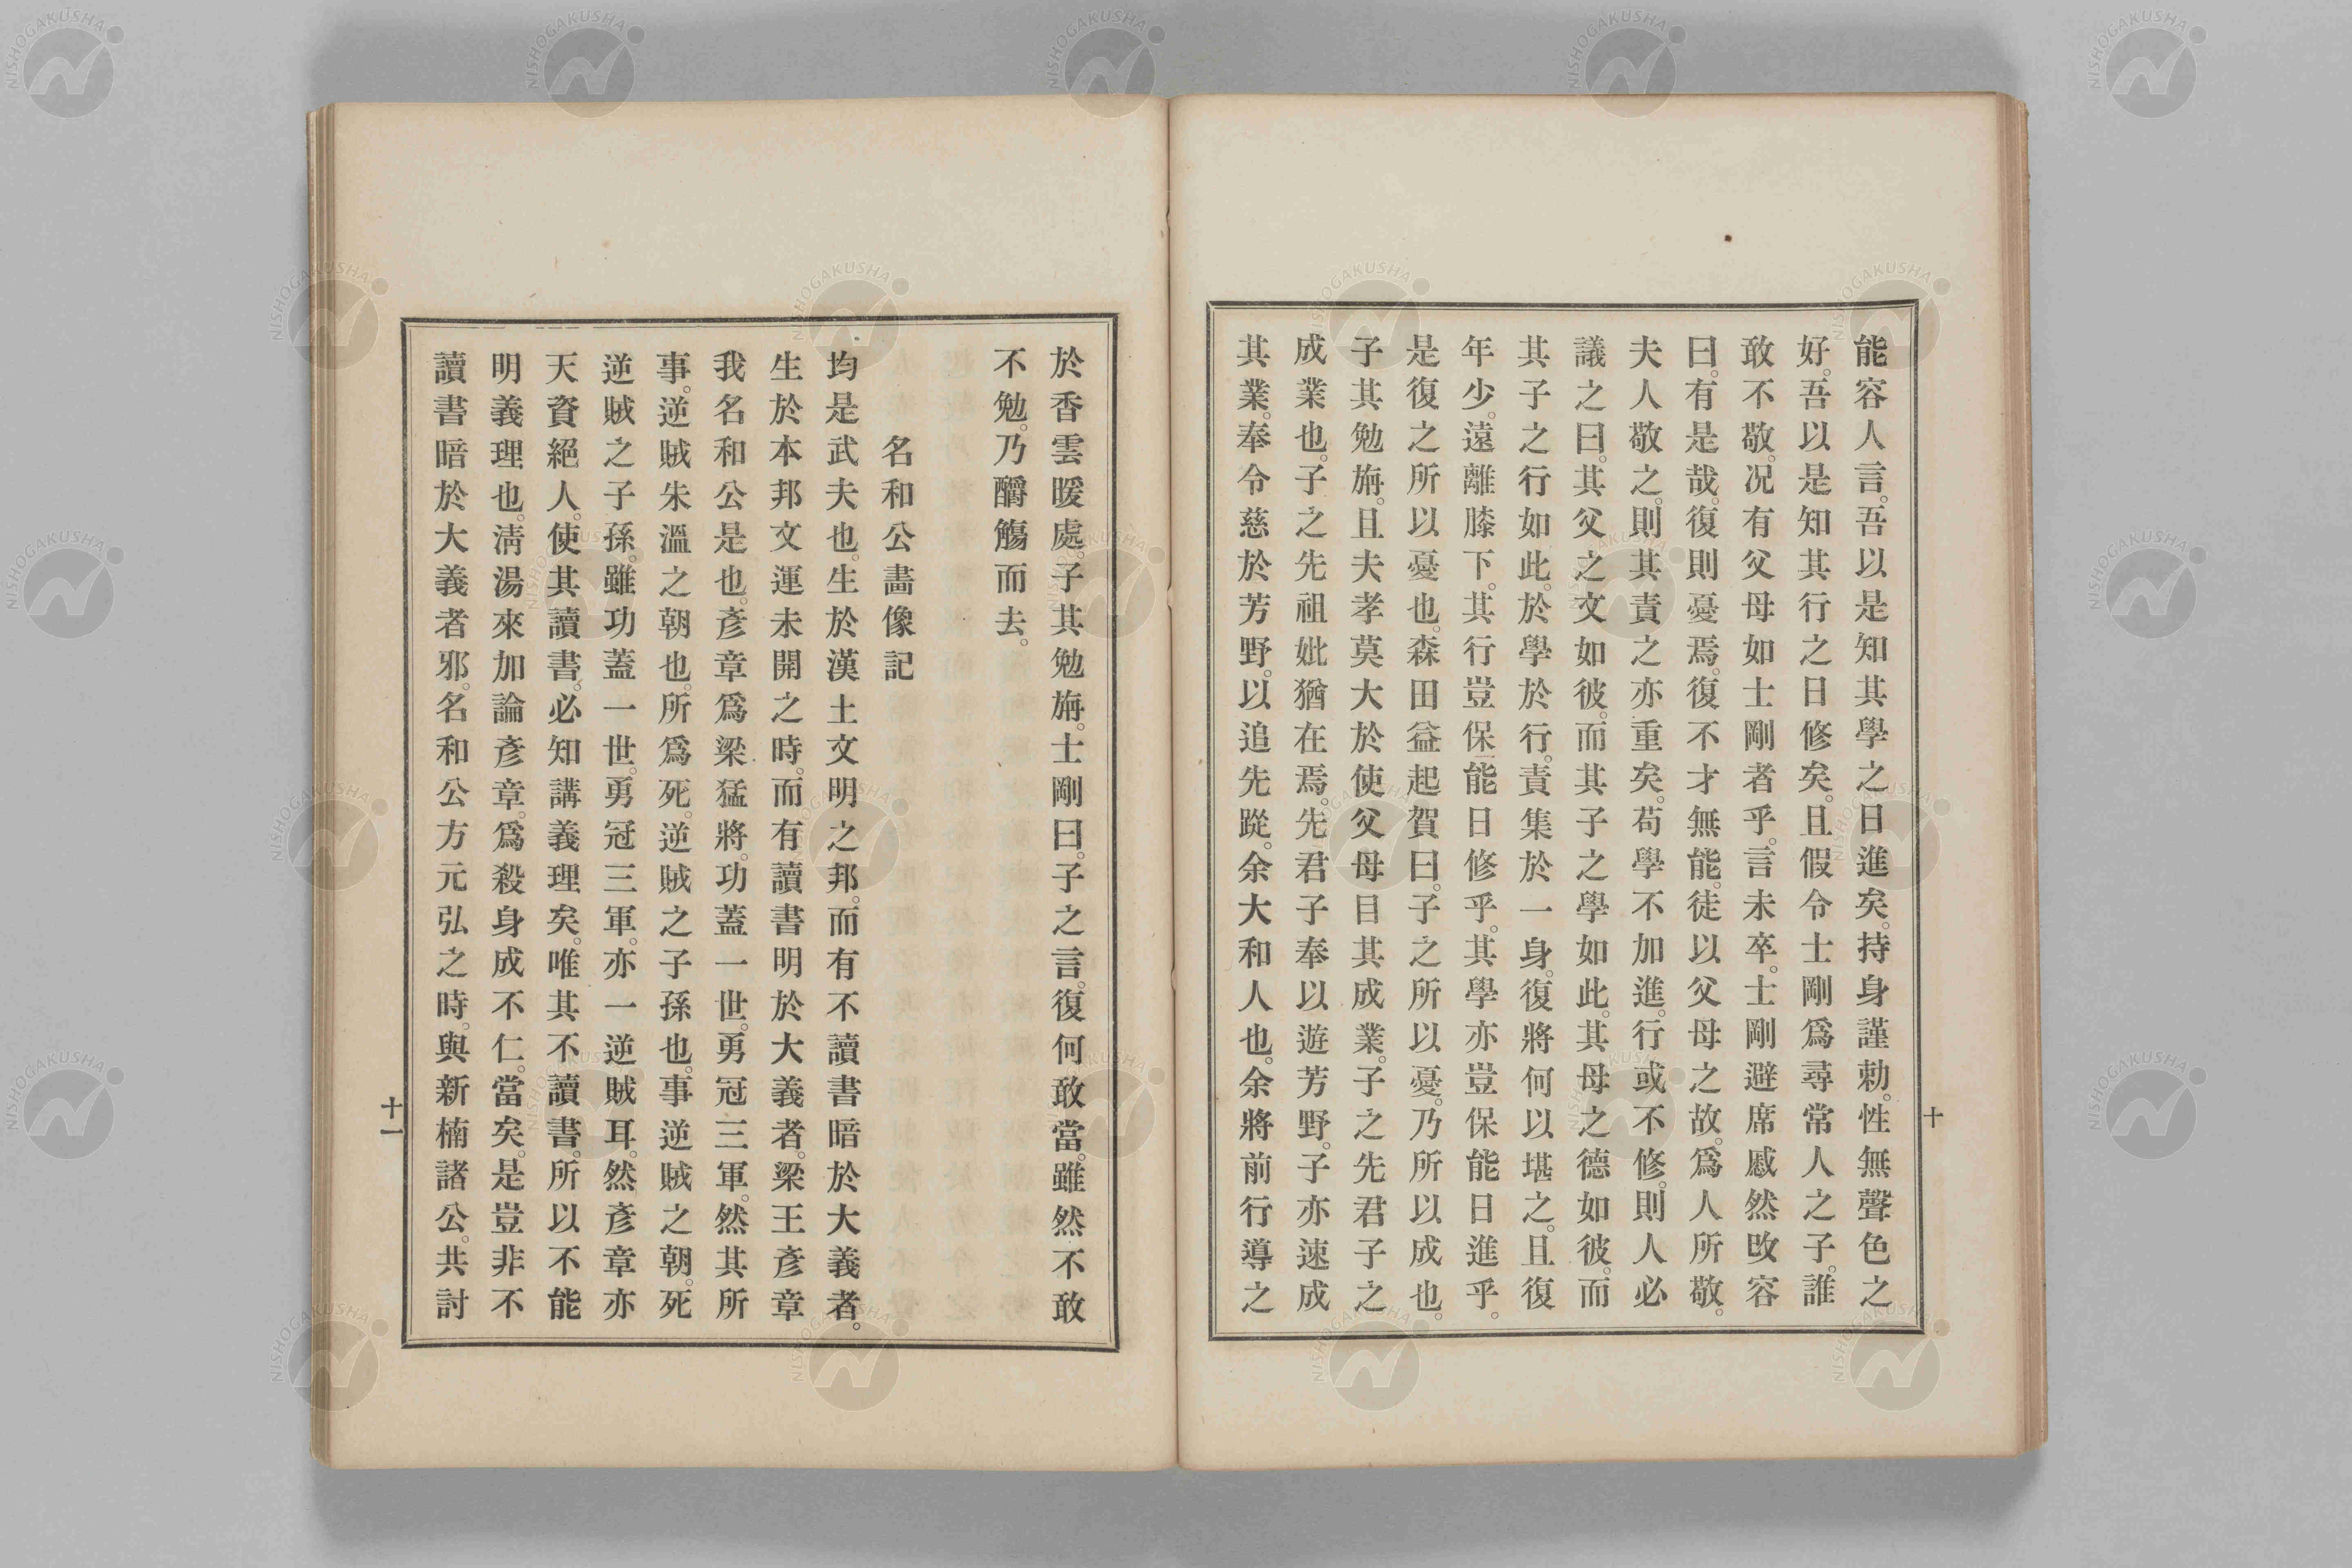 能容人言。吾以是知其學之日進矣。持身謹勅。性無聲色之
好。吾以是知其行之日修矣。且假令士剛爲尋常人之子。誰
敢不敬。况有父母如士剛者乎。言未卒。士剛避席慼然改容
曰。有是哉。復則憂焉。復不才無能。徒以父母之故。爲人所敬。
夫人敬之。則其責之亦重矣。苟學不加進。行或不修。則人必
議之曰。其父之文如彼。而其子之學如此。其母之德如彼。而
其子之行如此。於學於行。責集於一身。復將何以堪之。且復
年少。遠離膝下。其行豈保能日修乎。其學亦豈保能日進乎。
是復之所以憂也。森田益起賀曰。子之所以憂。乃所以成也。
子其勉旃。且夫孝莫大於使父母目其成業。子之先君子之
成業也。子之先祖妣猶在焉。先君子奉以遊芳野。子亦速成
其業。奉令慈於芳野。以追先蹤。余大和人也。余將前行導之
十
於香雲暖處。子其勉旃。士剛曰。子之言。復何敢當。雖然不敢
不勉。乃釂觴而去。
名和公畵像記
均是武夫也。生於漢土文明之邦。而有不讀書暗於大義者。
生於本邦文運未開之時。而有讀書明於大義者。梁王彥章
我名和公是也。彥章爲梁猛將。功蓋一世。勇冠三軍。然其所
事。逆賊朱溫之朝也。所爲死。逆賊之子孫也。事逆賊之朝。死
逆賊之子孫。雖功蓋一世。勇冠三軍。亦一逆賊耳。然彥章亦
天資絕人。使其讀書。必知講義理矣。唯其不讀書。所以不能
明義理也。淸湯來加論彥章。爲殺身成不仁。當矣。是豈非不
讀書暗於大義者邪。名和公方元弘之時。與新楠諸公。共討
十一
NISHOGAKUSHA